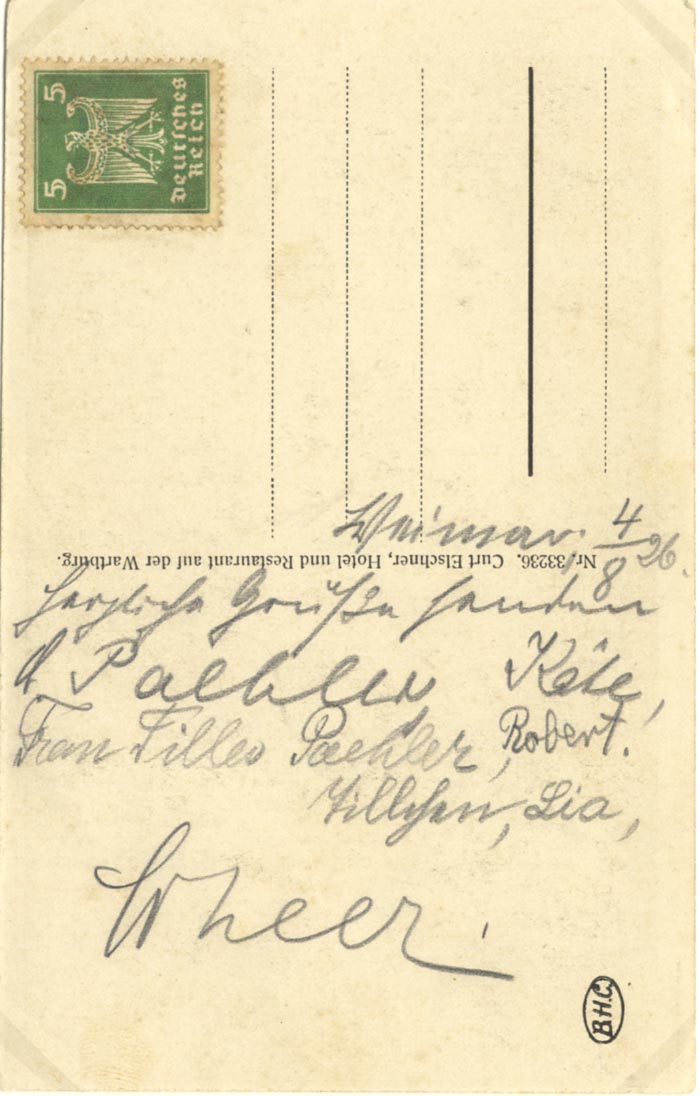 5 5
Deutsches
Reich
Weimar, 4/8 26.
Nr. 33236. Curt Elschner, Hotel und Restaurant auf der Wartburg.
herzliche Grüße senden
Paehler Käte,
Frau Paehler, Robert.
Tillchen, Lia,
B.H.C.